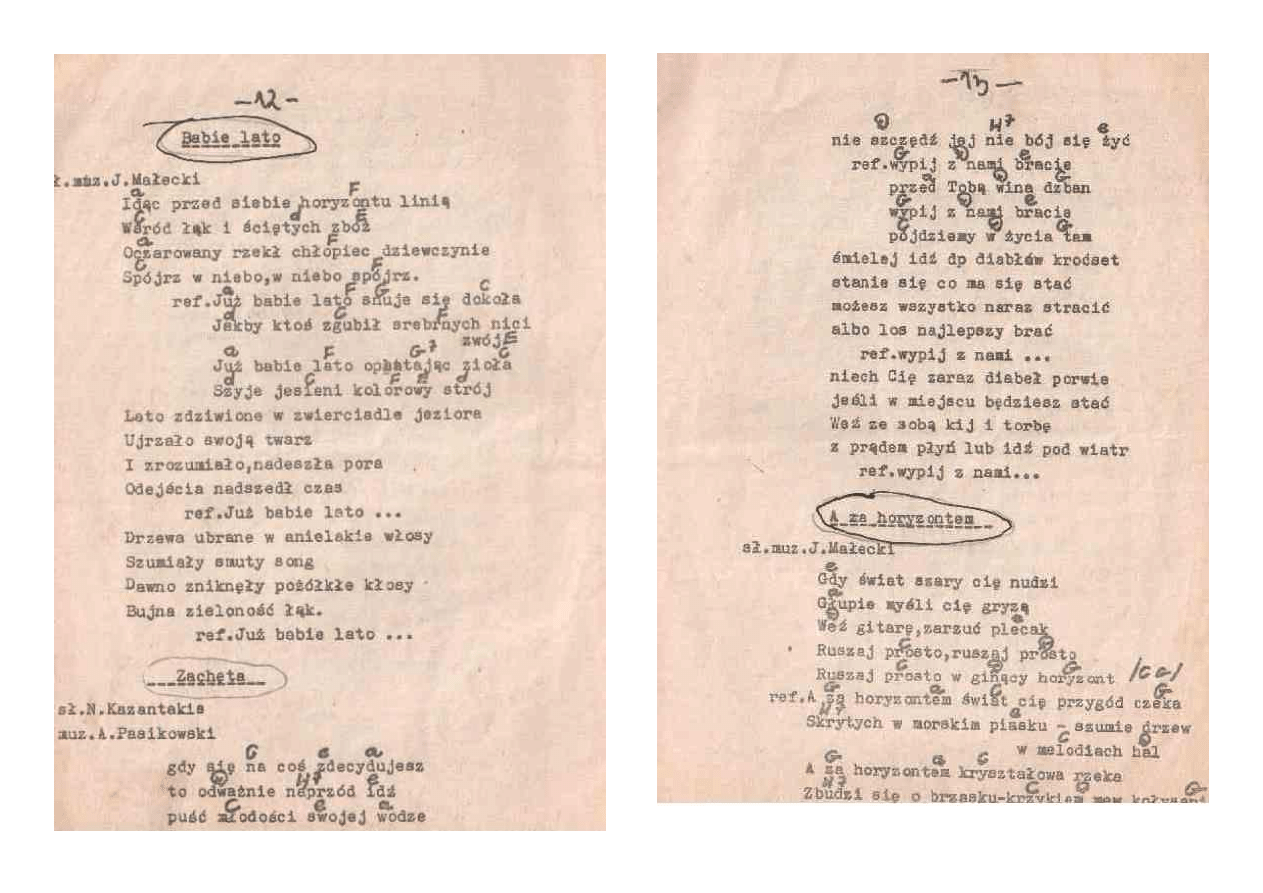 -12-
Babie lato
ł.muz.J.Małecki
a F
Idąc przed siebie horyzontu linią
G d E
Wśród łąk i ściętych zbóż
a F
Oczarowany rzekł chłopiec dziewczynie
G F
Spójrz w niebo,w niebo spójrz.
a F G C
ref.Już babie lato snuje się dokoła
d C F
Jakby ktoś zgubił srebrnych nici
zwój E
a F G7 C
Już babie lato oplatając zioła
d C F E d
Szyje jesieni kolorowy strój
Lato zdziwione w zwierciadle jeziora
Ujrzało swoją twarz
I zrozumiało,nadeszła pora
Odejścia nadszedł czas
ref.Już babie lato ...
Drzewa ubrane w anielskie włosy
Szumiały smuty song
Dawno zniknęły pożółkłe kłosy
Bujna zieloność łąk.
ref.Już babie lato ...
Zachęta
sł.N.Kazantakis
muz.A.Pasikowski
G e a
gdy się na coś zdecydujesz
D H7 e
to odważnie naprzód idź
C e a
puść młodości swojej wodze
-13-
D H7 e
nie szczędź jej nie bój się żyć
G D e
ref.wypij z nami bracie
a D G
przed Tobą wina dzban
G D e
wypij z nami bracie
C D G
pójdziemy w życia tam
śmielej idź dp diabłów krośset
stanie się co ma się stać
możesz wszystko naraz stracić
albo los najlepszy brać
ref.wypij z nami ...
niech Cię zaraz diabeł porwie
jeśli w miejscu będziesz stać
Weź ze sobą kij i torbę
z prądem płyń lub idź pod wiatr
ref.wypij z nami...
A za horyzontem
sł.muz.J.Małecki
e
Gdy świat szary cię nudzi
a
Głupie myśli cię gryzą
D e
Weź gitarę,zarzuć plecak
C D
Ruszaj prosto,ruszaj prosto
C D G
Ruszaj prosto w ginący horyzont
G a C G
ref.A za horyzontem świat cię przygód czeka
H7 a
Skrytych w morskim piasku - szumie drzew
C D
w melodiach hal
G a C
A za horyzontem kryształowa rzeka
H7 C D G
Zbudzi się o brzasku-krzykiem mew